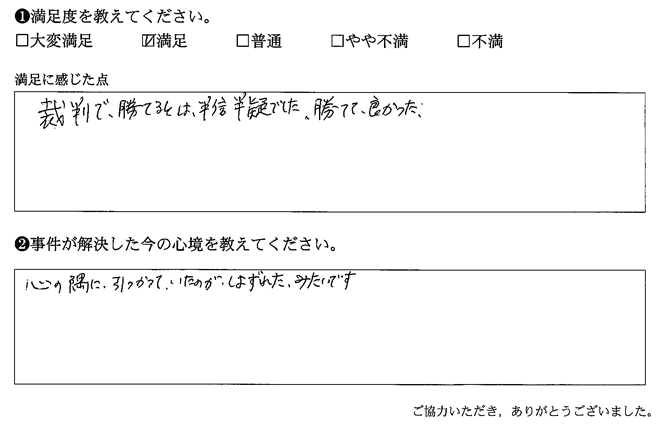 ❶満足度を教えてください。
□大変満足 ☑満足 □普通 □やや不満 □不満
満足に感じた点
裁判で、勝てるとは、半信半疑でした。勝てて、良かった、
❷事件が解決した今の心境を教えてください。
心の隅に、引っかかって、いたのが、はずれた、みたいです
ご協力いただき，ありがとうございました。